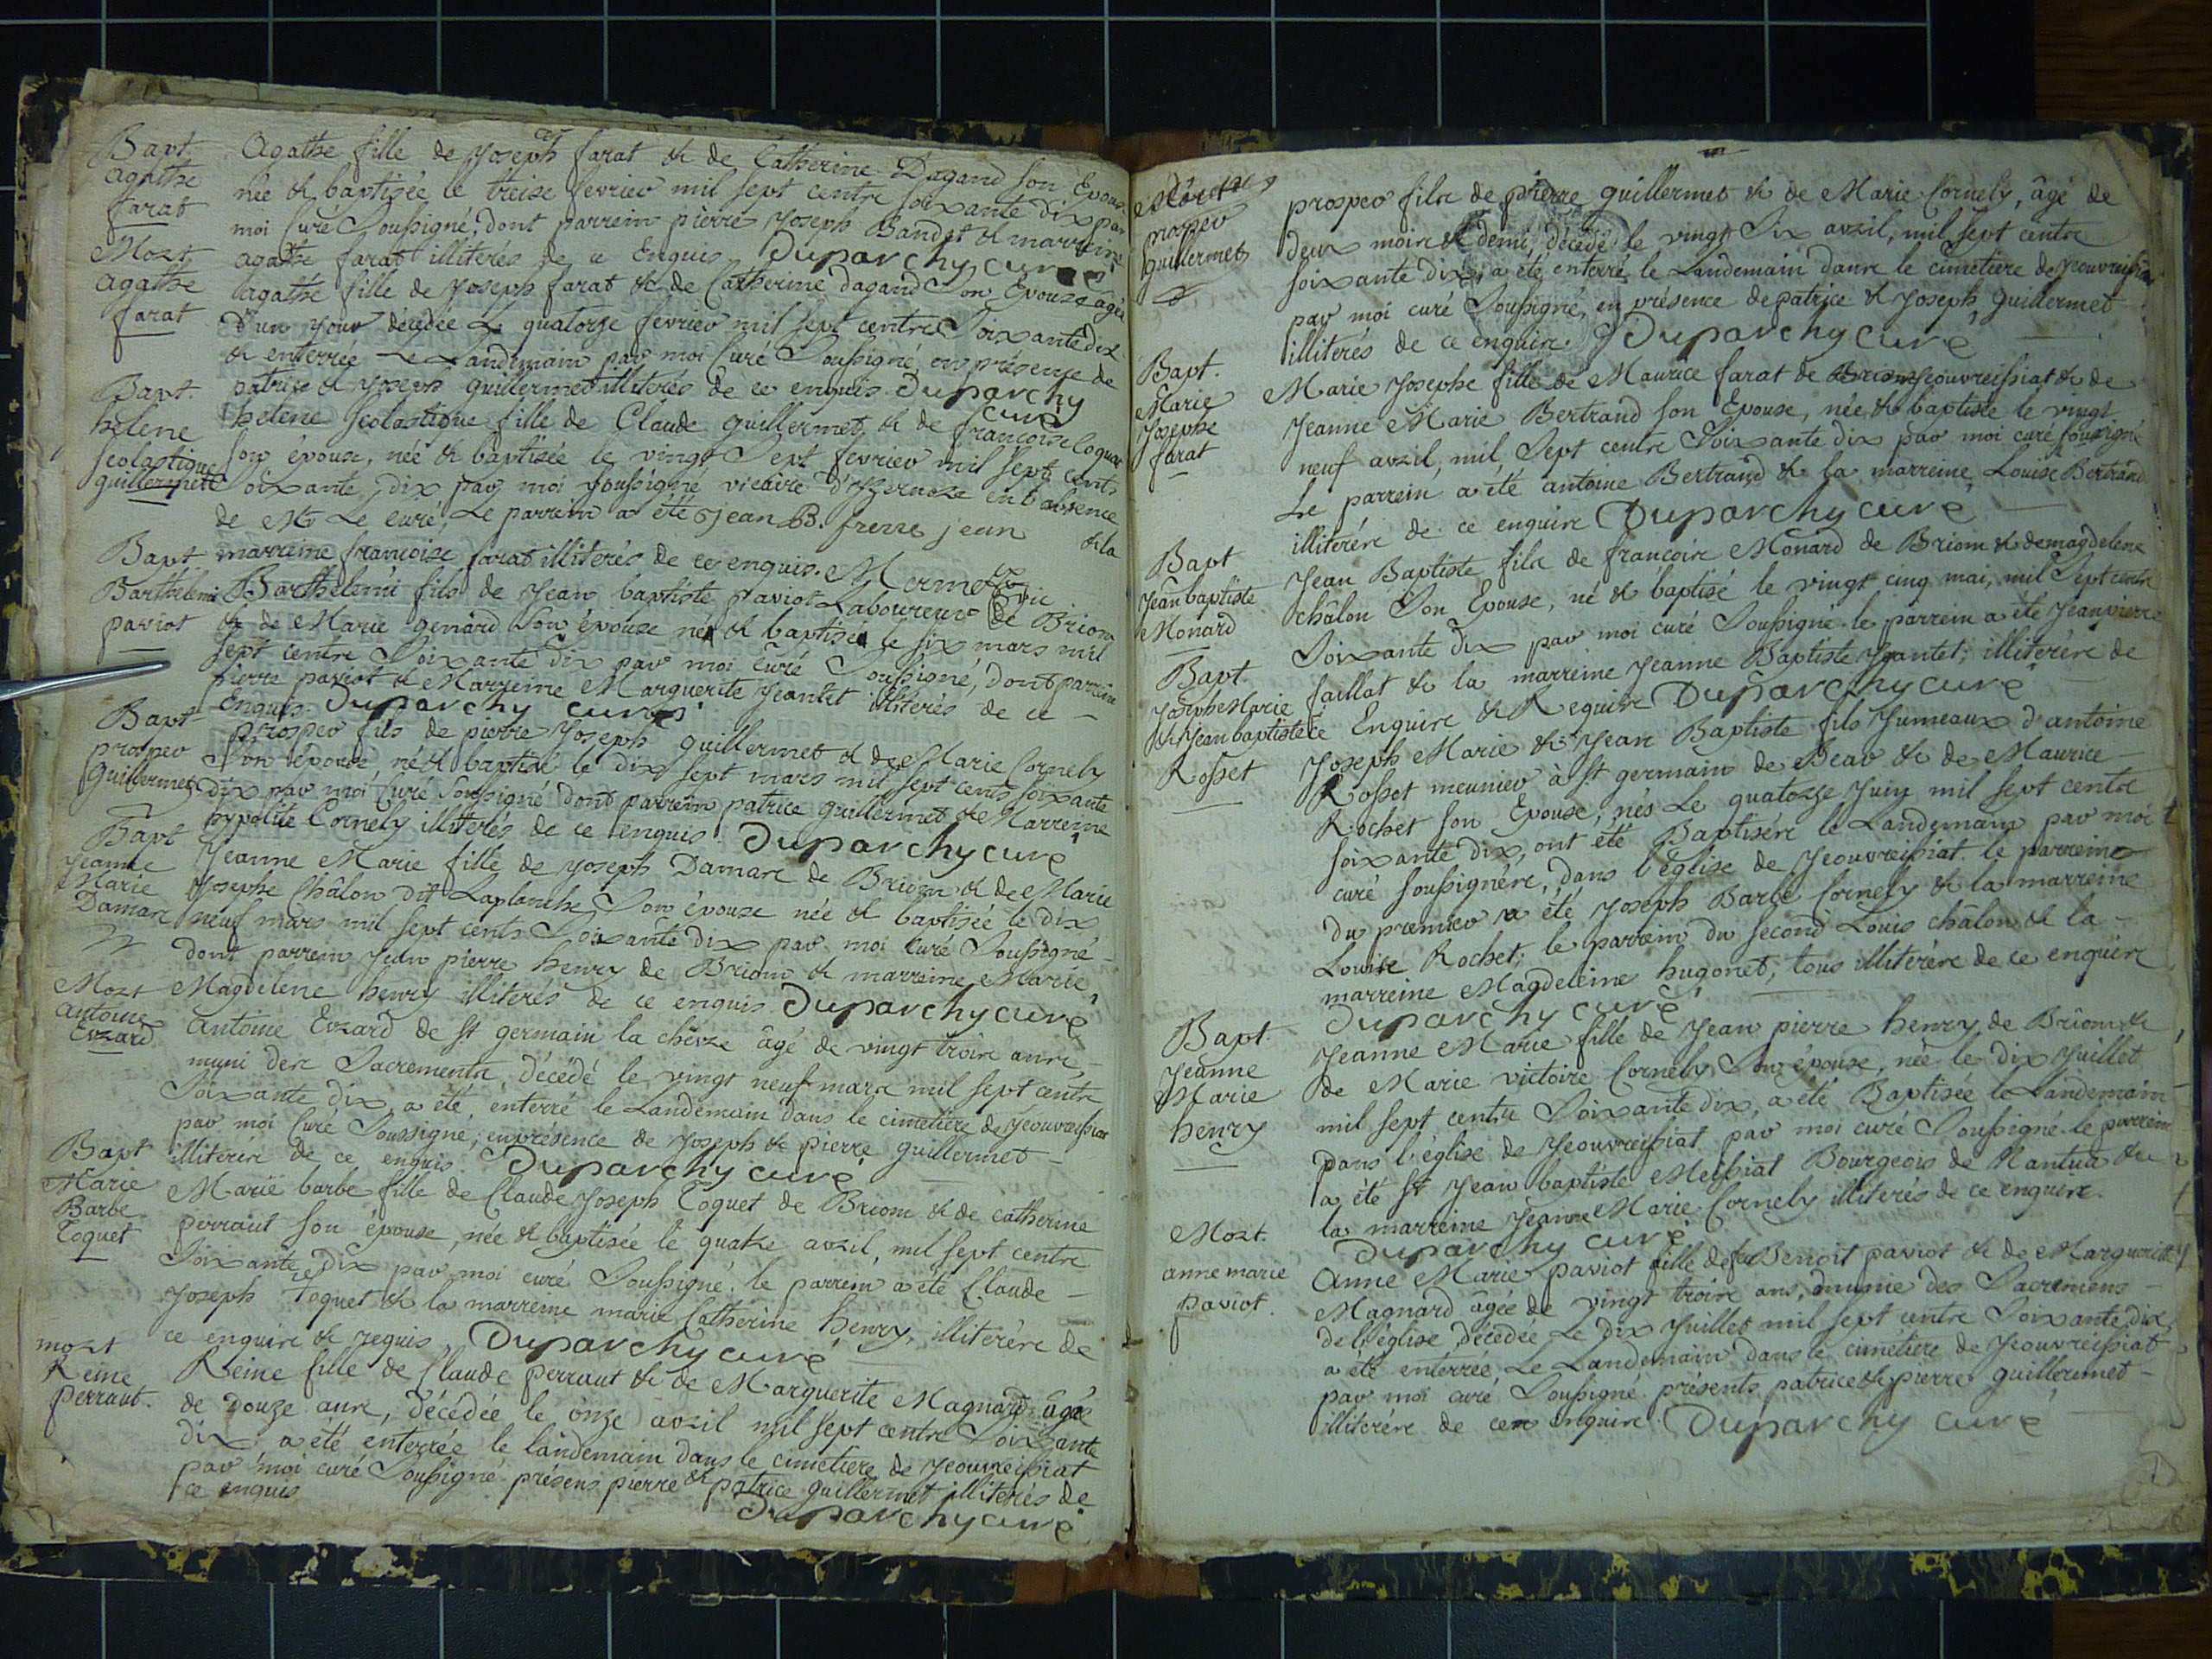 Bapt
agathe
farat
Agathe fille de Joseph farat & de Catherine Dagand son Epouse
née & baptisée le treise fevrier mil sept cents soixante dix par
moi Curé Soussigné, dont parrein pierre Joseph Bandet & marreine
agathe farat illiterés de ce Enquis Duparchy curé
Mort
agathe
farat
agathe fille de Joseph farat & de Catherine dagand Son Epouse agée
d'un jour décédée Le quatorze fevrier mil sept cents Soixante dix
& enterrée Le Landemain par moi Curé Soussigné, en présence de
patrice & Joseph guillermet illiterés de ce enquis Duparchy
curé
Bapt.
helene
scolastique
guillermete
helene scolastique fille de Claude guillermet & de francoise Coquet
son épouse, née & baptisée le vingt Sept fevrier mil sept cents
soixante dix par moi soussigné vicaire d'Izernore en l'absence
de Mr Le curé, Le parrein a été jean B. frerre jean & la
marreine francoise farat illiterés de ce enquis. Mermet vic
Bapt.
Barthelemi
paviot
Barthélemi fils de Jean baptiste paviot Laboureur de Briom
& de Marie genard Son épouse né & baptisé le six mars mil
sept cents Soixante dix par moi curé Soussigné, dont parrein
pierre paviot & Marreine Marguerite Jeantet illiterés de ce
Enquis. Duparchy curé
Bapt
prosper
Guillermet
prosper fils de pierre Joseph guillermet & de Marie Cornely
Son épouse né & baptisé le dix sept mars mil sept cents soixante
dix par moi Curé Soussigné dont parrein patrice guillermet & Marreine
hypolite Cornely illiterés de ce enquis. Duparchy curé
Bapt
Jeanne
Marie
Damare
Jeanne Marie fille de Joseph Damare de Briom & de Marie
Josephe Châlon dit Laplanche Son épouse née & baptisée le dix
neuf mars mil sept cents Soixante dix par moi Curé Soussigné
dont parrein Jean pierre henry de Briom & marreine Marie
Magdelene henry illiterés de ce enquis Duparchy curé
Mort
antoine
Evrard
antoine Evrard de st germain la chévre âgé de vingt trois ans,
muni des Sacrements, décédé le vingt neuf mars mil sept cents
Soixante dix, a été enterré le Landemain dans le cimetiere de Jeouvreissiat
par moi Curé Soussigné, en présence de Joseph & pierre guillermet
illiterés de ce enquis. Duparchy curé
Bapt
Marie
Barbe
Toquet
Marie barbe fille de Claude Joseph Toquet de Briom & de catherine
perraut son épouse, née & baptisée le quatre avril, mil sept cents
Soixante dix par moi curé Soussigné. le parrein a été Claude
Joseph Toquet & la marreine marie Catherine henry, illiterés de
ce enquis & requis, Duparchy curé
mort
Reine
perraut.
Reine fille de Claude perraut & de Marguerite Magnard âgée
de douze ans, décédée le onze avril mil sept cents Soixante
dix, a été enterrée le landemain dans le cimetiere de Jeouvreissiat
par moi curé Soussigné présens pierre & patrice guillermet illiterés de
ce enquis
Duparchy curé
Mort
prosper
guillermet
prosper fils de pierre guillermet & de Marie Cornely, âgé de
deux mois & demi, décédé le vingt Six avril, mil sept cents
soixante dix, a été enterré le Landemain dans le cimetiere de Jeouvreissiat
par moi curé Soussigné, en présence de patrice & Joseph guillermet
illiterés de ce enquis. Duparchy curé
Bapt.
Marie
Josephe
farat
Marie Josephe fille de Maurice farat de Jeouvreissiat & de
Jeanne Marie Bertrand son Epouse, née & baptisée le vingt
neuf avril, mil Sept cents Soixante dix par moi curé soussigné
Le parrein a été antoine Bertrand & la marreine Louise Bertrand
illiterés de ce enquis Duparchy curé
Bapt
Jean baptiste
Monard
Jean Baptiste fils de françois Monard de Briom & de magdelene
châlon Son Epouse, né & baptisé le vingt cinq mai, mil Sept cents
Soixante Dix par moi curé Soussigné le parrein a été Jean pierre
faillat & la marreine Jeanne Baptiste Jeantet, illiterés de
ce Enquis & Requis Duparchy curé
Bapt.
Joseph Marie
& Jean baptiste
Rosset
Joseph Marie & Jean Baptiste fils Jumeaux d'antoine
Rosset meunier à st germain de Bear & de Maurice
Rochet son Epouse, nés Le quatorze Juin mil sept cents
soixante dix, ont été Baptisés le Landemain par moi
curé soussigné, dans l'église de Jeouvreissiat. le parrein
du premier a été Joseph Barbe Cornely & la marreine
Louise Rochet; le parrein du second Louis châlon & la
marreine Magdeleine hugonet, tous illiterés de ce enquis
Duparchy curé
Bapt.
Jeanne
Marie
henry
Jeanne Marie fille de Jean pierre henry de Briom &
de Marie victoire Cornely Son épouse, née le dix Juillet
mil sept cents Soixante dix, a été Baptisée le Landemain
dans l'église de Jeouvreissiat par moi curé Soussigné le parrein
a été sr Jean baptiste Meissiat Bourgeois de Nantua &
la marreine Jeanne Marie Cornely illiterés de ce enquis.
Duparchy curé
Mort.
anne marie
paviot.
Anne Marie paviot fille de feu Benoit paviot & de Marguerite
Magnard âgée de vingt trois ans, munie des Sacremens
de l'église, décédée Le dix Juillet mil sept cents Soixante dix,
a été enterrée Le Landemain dans le cimétiere de Jeouvreissiat
par moi curé Soussigné présents patrice & pierre guillermet
illiterés de ce enquis. Duparchy curé